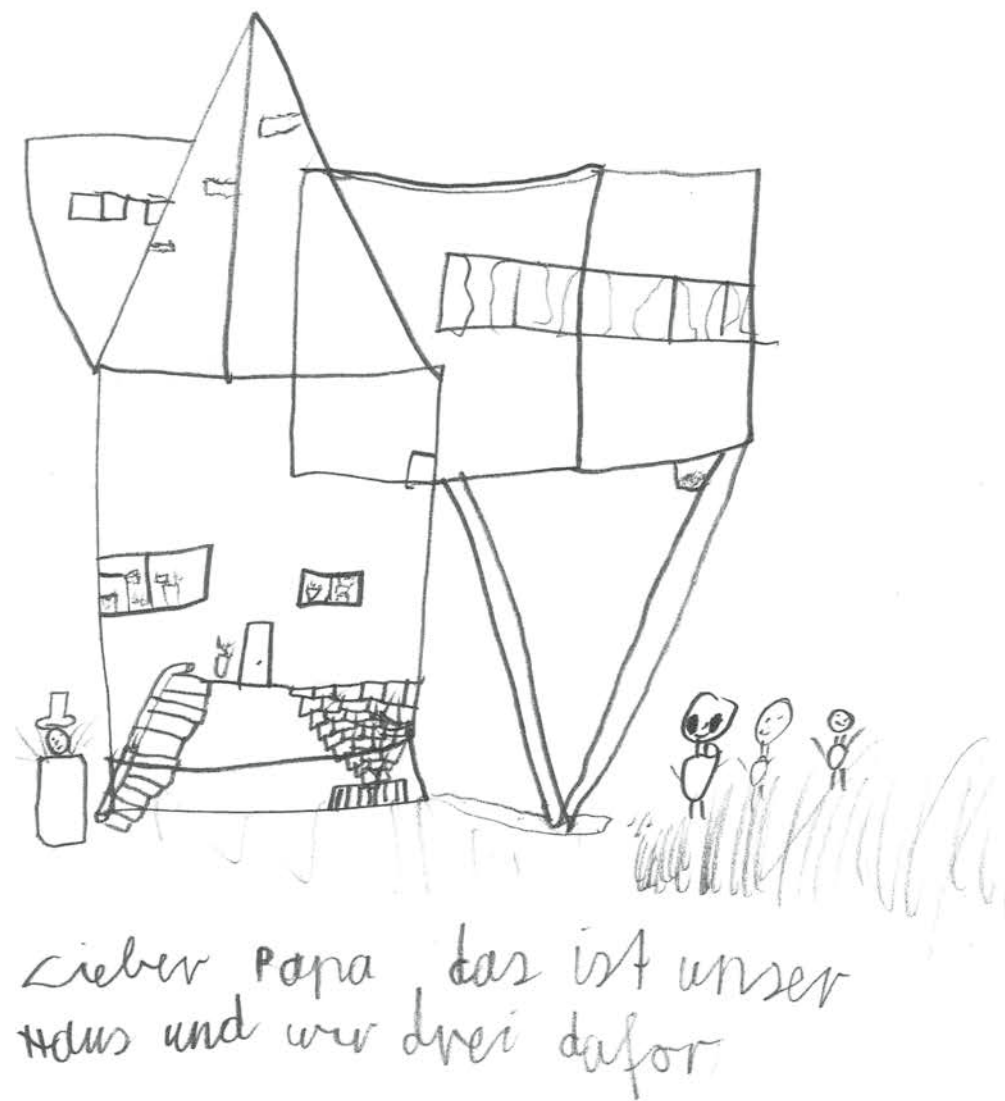 Lieber Papa, das ist unser
Haus und wir drei dafor